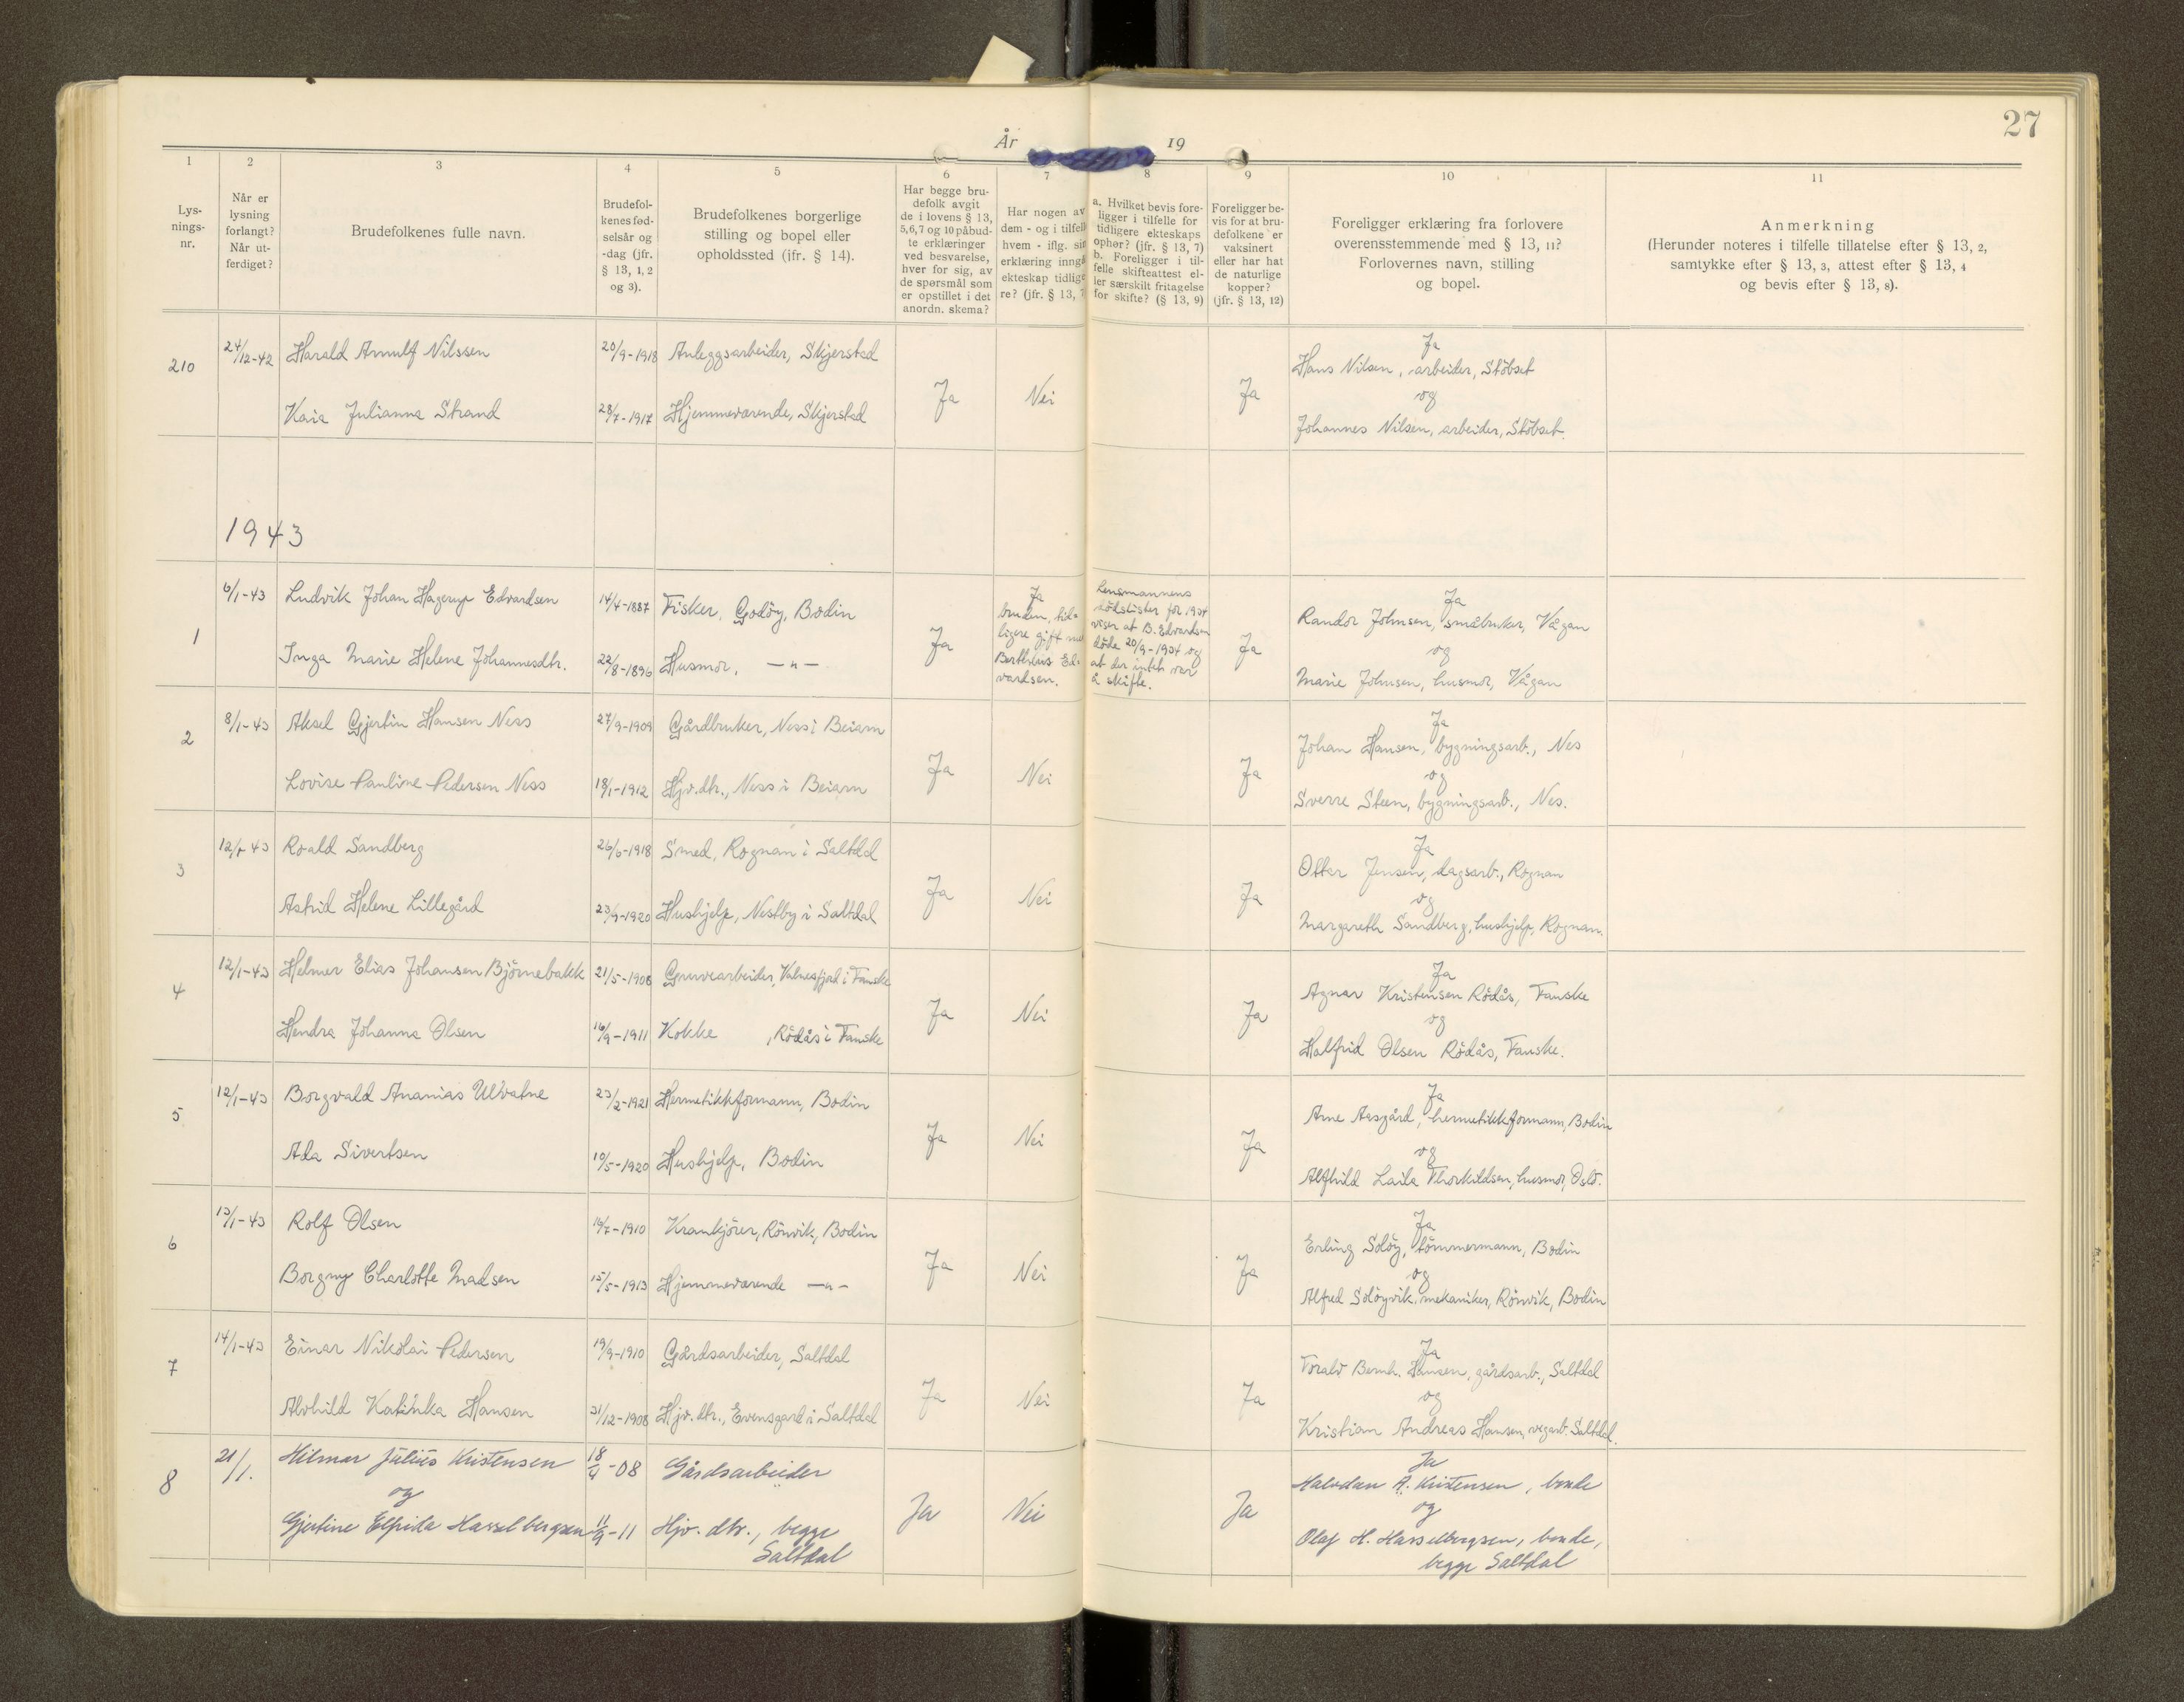 27
År 19
1 2 3 4 5 6 7 8 9 10 11
Lys-
nings-
nr.
Når er
lysning
forlangt?
Når ut-
ferdiget?
Brudefolkenes fulle navn.
Brudefol-
kenes fød-
selsår og
-dag (jfr.
§ 13, 1, 2
og 3).
Brudefolkenes borgerlige
stilling og bopel eller
opholdssted (jfr. § 14).
Har begge bru-
defolk avgit
de i lovens § 13,
5,6,7 og 10 påbud-
te erklæringer
ved besvarelse,
hver for sig, av
de spørsmål som
er opstillet i det
anordn. skema?
Har nogen av
dem - og i tilfelle
hvem - iflg. sin
erklæring inngå
ekteskap tidlige
re? (jfr. § 13, 7
a. Hvilket bevis fore-
ligger i tilfelle for
tidligere ekteskaps
ophør? (jfr. § 13, 7)
b. Foreligger i til-
felle skifteattest el-
ler særskilt fritagelse
for skifte? (§ 13, 9)
Foreligger be-
vis for at bru-
defolkene er
vaksinert
eller har hat
de naturlige
kopper?
(jfr. § 13, 12)
Foreligger erklæring fra forlovere
overensstemmende med § 13, 11?
Forlovernes navn, stilling
og bopel.
Anmerkning
(Herunder noteres i tilfelle tillatelse efter § 13, 2,
samtykke efter § 13, 3, attest efter § 13, 4
og bevis efter § 13, 8).
210
24/12-42
Harald Arnulf Nilssen
20/9-1918
Anleggsarbeider, Skjerstad
Kaia Julianna Strand
28/7-1917
Hjemmeværende, Skjerstad
Ja
Nei
Ja
Ja
Hans Nilsen, arbeider, Stöbset
og
Johannes Nilsen, arbeider, Stöbset.
1943
1
6/1-43
Ludvik Johan Hagerup Edvardsen
14/4-1887
Fisker, Godöy, Bodin
Inga Marie Helene Johannesdtr.
22/8-1896
Husmor, —"—
Ja
Ja
bruden, tid-
ligere gift me
Berthleus Ed-
vardsen.
Lensmannens
dödslister for 1934
viser at B. Edvardsen
döde 20/9-1934 og
at der intet var
å skifte.
Ja
Ja
Randor Johnsen, småbruker, Vågan
og
Marie Johnsen, husmor, Vågan
2
8/1-43
Aksel Gjertin Hansen Ness
27/9-1909
Gårdbruker, Ness i Beiarn
Lovise Pauline Pedersen Ness
18/1-1912
Hjv.dtr., Ness i Beiarn
Ja
Nei
Ja
Ja
Johan Hansen, bygningsarb., Nes
og
Sverre Steen, bygningsarb., Nes.
3
12/1-43
Roald Sandberg
26/6-1918
Smed, Rognan i Saltdal
Astrid Helene Lillegård
23/9-1920
Hushjelp, Nestby i Saltdal
Ja
Nei
Ja
Ja
Ottar Jensen, dagsarb., Rognan
og
Margareth Sandberg, hushjelp, Rognan.
4
12/1-43
Helmer Elias Johansen Björnebakk
21/5-1908
Gruvearbeider, Valnesfjord i Fauske
Hendra Johanna Olsen
16/9-1911
Kokke , Rödås i Fauske
Ja
Nei
Ja
Ja
Agnar Kristensen Rödås, Fauske
og
Halfrid Olsen Rödås, Fauske.
5
12/1-43
Borgvald Ananias Ulvatne
23/2-1921
Hermetikkformann, Bodin
Ada Sivertsen
10/5-1920
Hushjelp, Bodin
Ja
Nei
Ja
Ja
Arne Aasgård, hermetikkformann, Bodin
og
Alfhild Laila Thorkildsen, husmor, Oslo.
6
13/1-43
Rolf Olsen
16/7-1910
Krankjörer, Rönvik, Bodin
Borgny Charlotte Madsen
15/5-1913
Hjemmeværende —"—
Ja
Nei
Ja
Ja
Erling Solöy, tömmermann, Bodin
og
Alfred Solöyvik, mekaniker, Rönvik, Bodin
7
14/1-43
Einar Nikolai Pedersen
19/9-1910
Gårdsarbeider, Saltdal
Alvhild Katinka Hansen
31/12-1908
Hjv. dtr., Evensgard i Saltdal
Ja
Nei
Ja
Ja
Toralv Bernh. Hansen, gårdsarb., Saltdal
og
Kristian Andreas Hansen, vegarb. Saltdal.
8
21/1.
Hilmar Julius Kristensen
18/4-08
Gårdsarbeider
og
Gjertine Elfrida Hasselbergsen
11/9-11
Hjv. dtr., begge
Saltdal
Ja
Nei
Ja
Ja
Halvdan A. Kristensen, bonde
og
Olaf H. Hasselbergsen, bonde,
begge Saltdal